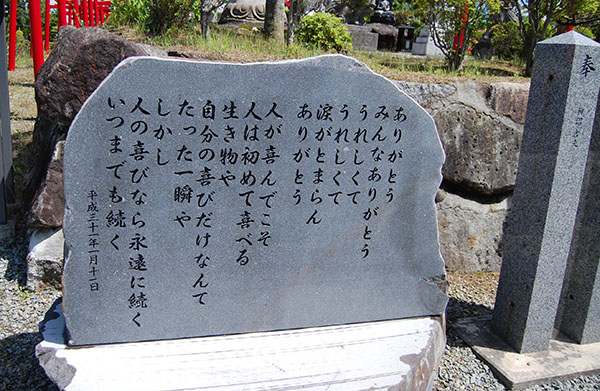 ありがとう
みんなありがとう
うれしくて
うれしくて
涙がとまらん
ありがとう
人が喜んでこそ
人は初めて喜べる
生き物や
自分の喜びだけなんて
たった一瞬や
しかし
人の喜びなら永遠に続く
いつまでも続く
平成三十一年一月十一日
奉